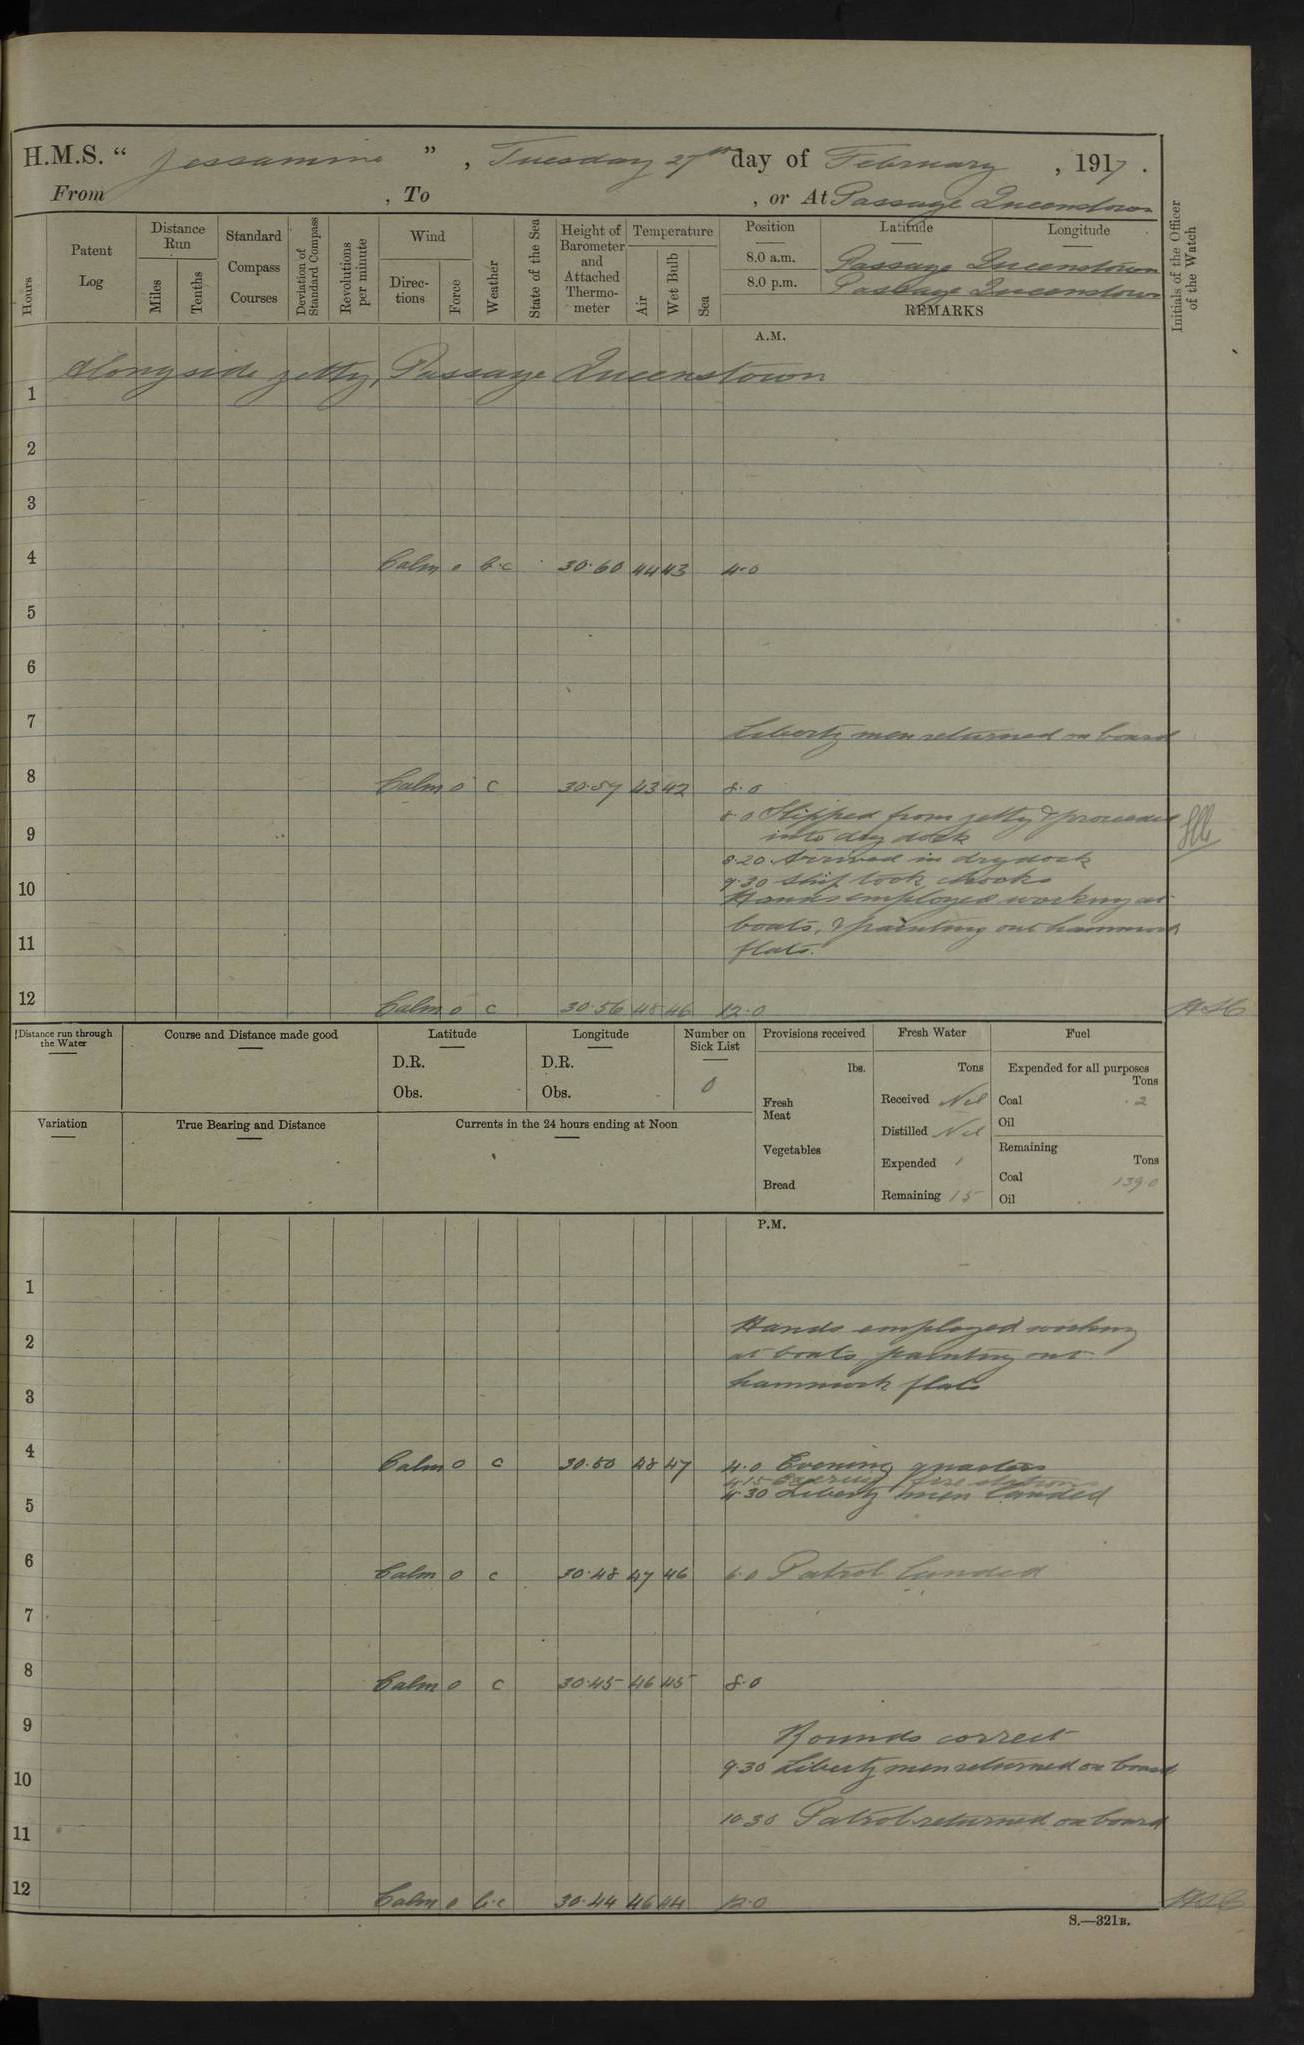 H.M.S. “ Jessamine ” , Tuesday 27th day of February , 1917 .
From , To , or At Passage Queenstown
Hours
Patent Log
Distance Run
Miles
Tenths
Standard Compass Courses
Deviation of Standard Compass
Revolutions per minute
Wind
Directions
Force
Weather
State of the Sea
Height of Barometer and Attached Thermometer
Temperature
Air
Wet Bulb
Sea
Position
Latitude
Longitude
8.0 a.m. Passage Queenstown
8.0 p.m. Passage Queenstown
REMARKS
Initials of the Officer of the Watch
A.M.
Alongside jetty, Passage Queenstown
1
2
3
4 Calm 0 b.c 30.60 44 43 4.0
5
6
7 Liberty men returned on board
8 Calm 0 c 30.57 43 42 8.0
8.0 Slipped from jetty & proceeded
9 into dry dock
8.20 Arrived in dry dock
9.30 Ship took chocks
10 Hands employed working at
boats, & painting out hammock
11 flats.
12 Calm 0 c 30.56 48 46 12.0
Distance run through the Water
Course and Distance made good
Latitude
D.R.
Obs.
Longitude
D.R.
Obs.
Number on Sick List
0
Provisions received
lbs.
Fresh Meat
Vegetables
Bread
Fresh Water
Tons
Received Nil
Distilled Nil
Expended 1
Remaining 15
Fuel
Expended for all purposes
Tons
Coal 2
Oil
Remaining
Tons
Coal 139.0
Oil
Variation
True Bearing and Distance
Currents in the 24 hours ending at Noon
P.M.
1
2 Hands employed working
at boats, painting out
3 hammock flats
4 Calm 0 c 30.50 48 47 4.0 Evening quarters
4.15 Exercise fire stations
5 4.30 Liberty men landed
6 Calm 0 c 30.48 47 46 6.0 Patrol landed
7
8 Calm 0 c 30.45 46 45 8.0
9 Rounds correct
10 9.30 Liberty men returned on board
11 10.30 Patrol returned on board
12 Calm 0 b.c 30.44 46 44 12.0
S.—321B.